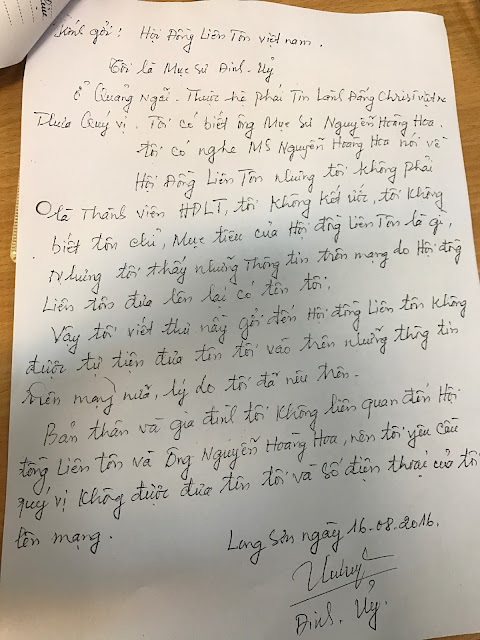 Kính gởi! Hội Đồng Liên Tôn việt nam.
Tôi là Mục sư Đinh-Uỷ
ở Quảng Ngãi. Thuộc hệ phái Tin Lành Đấng Christ việt
Thưa Quý vị. Tôi có biết ông Mục sư Nguyễn Hoàng Hoa.
tôi có nghe MS Nguyễn Hoàng Hoa nói về
Hội Đồng Liên Tôn nhưng tôi không phải
là Thành viên HĐLT, tôi Không Kết ước, tôi Không
biết tôn chỉ, Mục tiêu của Hội đồng Liên Tôn là gì,
Nhưng tôi thấy những Thông tin trên mạng do Hội đồng
Liên tôn đưa lên lại có tên tôi.
Vậy tôi viết thư này gởi đến Hội đồng Liên tôn Không
được tự tiện đưa tên tôi vào trên những thông tin
trên mạng nữa, lý do tôi đã nêu trên.
Bản thân và gia đình tôi Không liên quan đến Hội
tồng Liên Tôn và Ông Nguyễn Hoàng Hoa, nên tôi yêu cầu
quý vị Không được đưa tên tôi và số điện thoại của tôi
lên mạng.
Long Sơn ngày 16-08.2016.
Đinh. Uỷ.